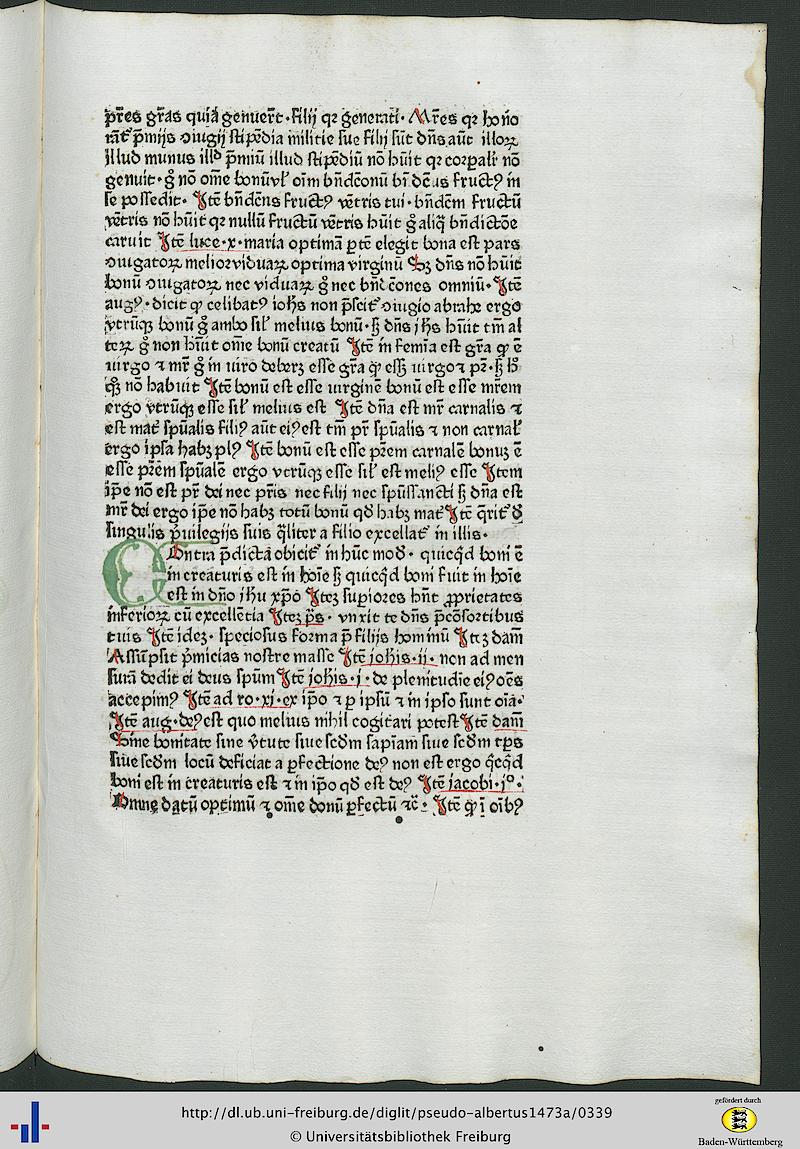 p̄res gr̄as quia genuer̄t · filij qꝛ generati · Mr̄es qꝛ hōno
rāt p̄mijs ꝯiugij stipēdia militie sue filij sūt dn̄s aūt illoꝝ
illud munus illð p̄miū illud stipēdiū nō hūit qꝛ corꝑalr̄ nō
genuit · g̊ nō om̄e bonū vl̄ oīm bn̄dc̄onū bn̄dc̄us fructꝰ in
se possedit · Itē bn̄dc̄ns fructꝰ vētris tui · bn̄dcm̄ fructū
vētris nō hūit qꝛ nullū fructū vētris hūit g̊ aliq̄ bn̄dictōe
caruit Itē luce · x · maria optimā ꝑtē elegit bona est pars
ꝯiugatoꝝ melior viduaꝝ optima virginū Sꝫ dn̄s nō hūit
bonū ꝯiugatoꝝ nec viduaꝝ g̊ nec bn̄dcc̄ones omniū · Itē
augꝰ · dicit ꝙ celibatꝰ ioħs non p̄fert̄ ꝯiugio abrahe ergo
vtrūqꝫ bonū g̊ ambo sil̄ melius bonū · ꝫ dn̄s jħs hūit tm̄ al
teꝝ g̊ non hūit om̄e bonū creatū Itē in femīa est gr̄a ꝙ ē
uirgo ⁊ mr̄ g̊ in uiro deberꝫ esse gr̄a ꝙ eēt uirgo ⁊ pr̄ · ꝫ ħ
qꝫ nō habuit Itē bonū est esse uirginē bonū est esse mr̄em
ergo vtrūqꝫ esse sil̄ melius est Itē dn̄a est mr̄ carnalis ⁊
est mat̄ spūalis filiꝰ aūt eiꝰ est tm̄ pr̄ spūalis ⁊ non carnal̄
ergo ipsa habꝫ plꝰ Itē bonū est esse p̄rem carnalē bonuꝫ ē
esse p̄rem spūalē ergo vtrūqꝫ esse sil̄ est meliꝰ esse Item
ip̄e nō est pr̄ dei nec p̄ris nec filij nec spūssancti ꝫ dn̄a est
mr̄ dei ergo ip̄e nō habꝫ totū bonū qð habꝫ mat̄ Itē q̄rit̄ ð
singulis p̄uilegijs suis q̄liter a filio excellat̄ in illis ·
Contra p̄dicta obicit̄ in hūc mod̄ · quicq̄d boni ē
in creaturis est in hoīe ꝫ quicq̄d boni fuit in hoīe
est in dn̄o jħu xp̄o Iteꝫ supiores hn̄t ꝓprietates
inferioꝝ cū excellētia Iteꝫ p̄s · vnxit te dn̄s p̄cōsortibus
tuis Itē ideꝫ · speciosus forma p̄ filijs hominū Iteꝫ dam̄
Assūpsit p̄micias nostre masse Itē joħis · ij · non ad men
surā dedit ei deus spūm Itē joħis · j · de plenitudie eiꝰ oēs
accepimꝰ Itē ad ro · xj · ex ip̄o ⁊ ꝑ ipsū ⁊ in ipso sunt oīa ·
Itē aug · deꝰ est quo melius nihil cogitari potest Itē dam̄
Sine bonitate siue v̄tute siue scd̄m sapīam siue scd̄m tp̄s
siue scd̄m locū deficiat a ꝑfectione deꝰ non est ergo q̄cq̄d
boni est in creaturis est ⁊ in ip̄o qð est deꝰ Itē jacobi · jº ·
Omne datū optimū ⁊ om̄e donū ꝑfectū ⁊c̄ · Itē ꝙ ī oībꝰ
http://dl.ub.uni-freiburg.de/diglit/pseudo-albertus1473a/0339
© Universitätsbibliothek Freiburg
gefördert durch
Baden-Württemberg